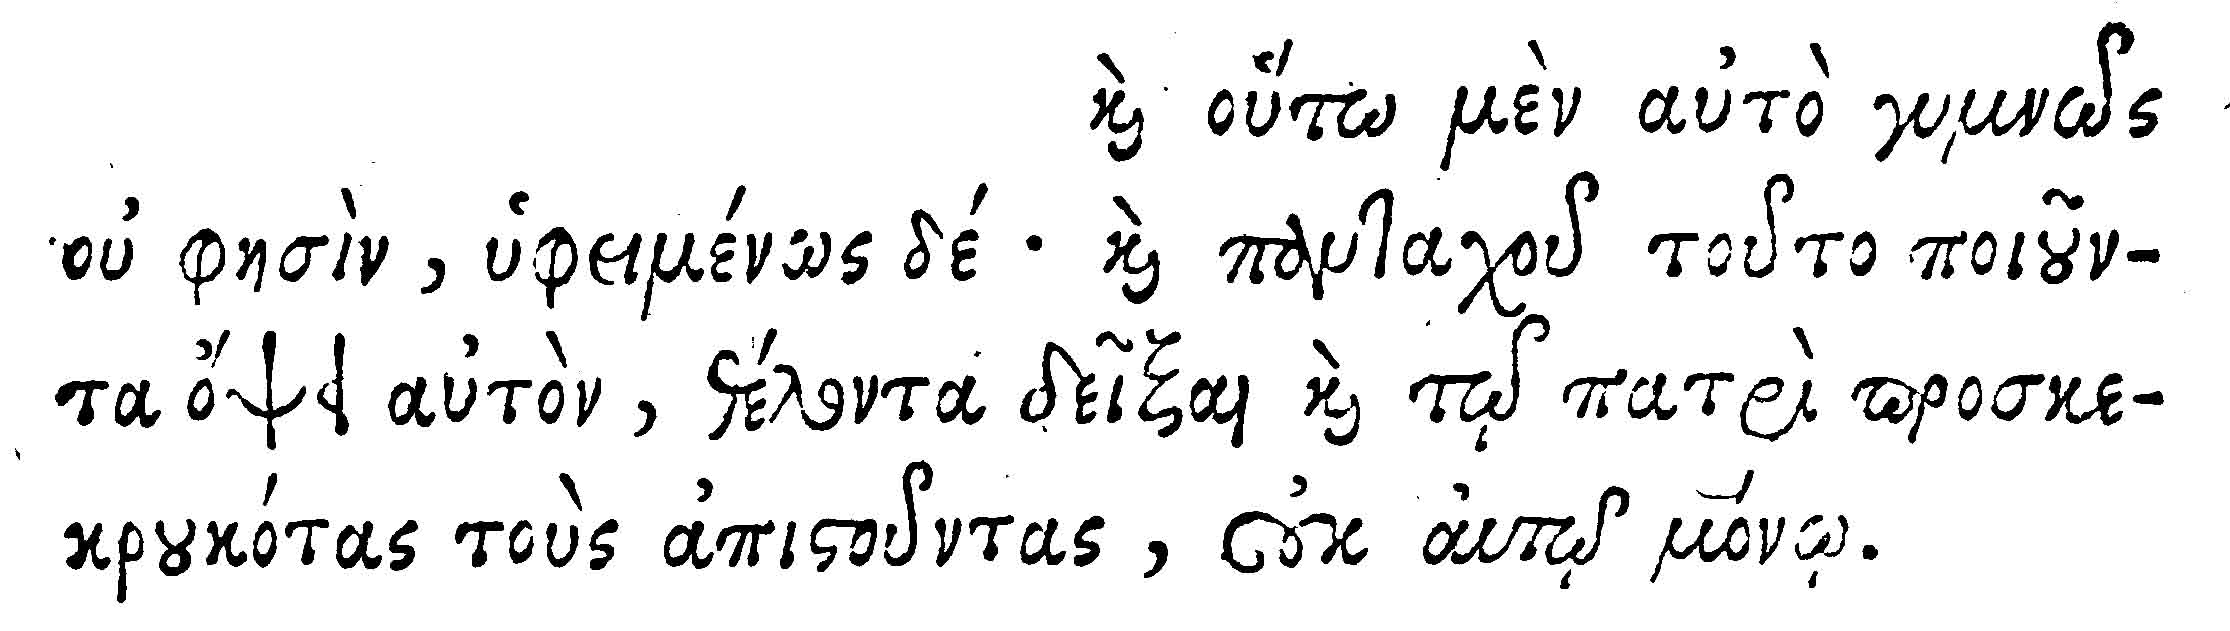 καὶ οὕτω μὲν αὐτὸ γυμνῶς
οὐ φησὶν, ὑφειμένως δέ· καὶ πανταχοῦ τοῦτο ποιοῦν-
τα ὄψει αὐτὸν, θέλοντα δεῖξαι καὶ τῷ πατρὶ προσκε-
κρουκότας τοὺς ἀπιστοῦντας, οὐκ αὐτῷ μόνῳ.